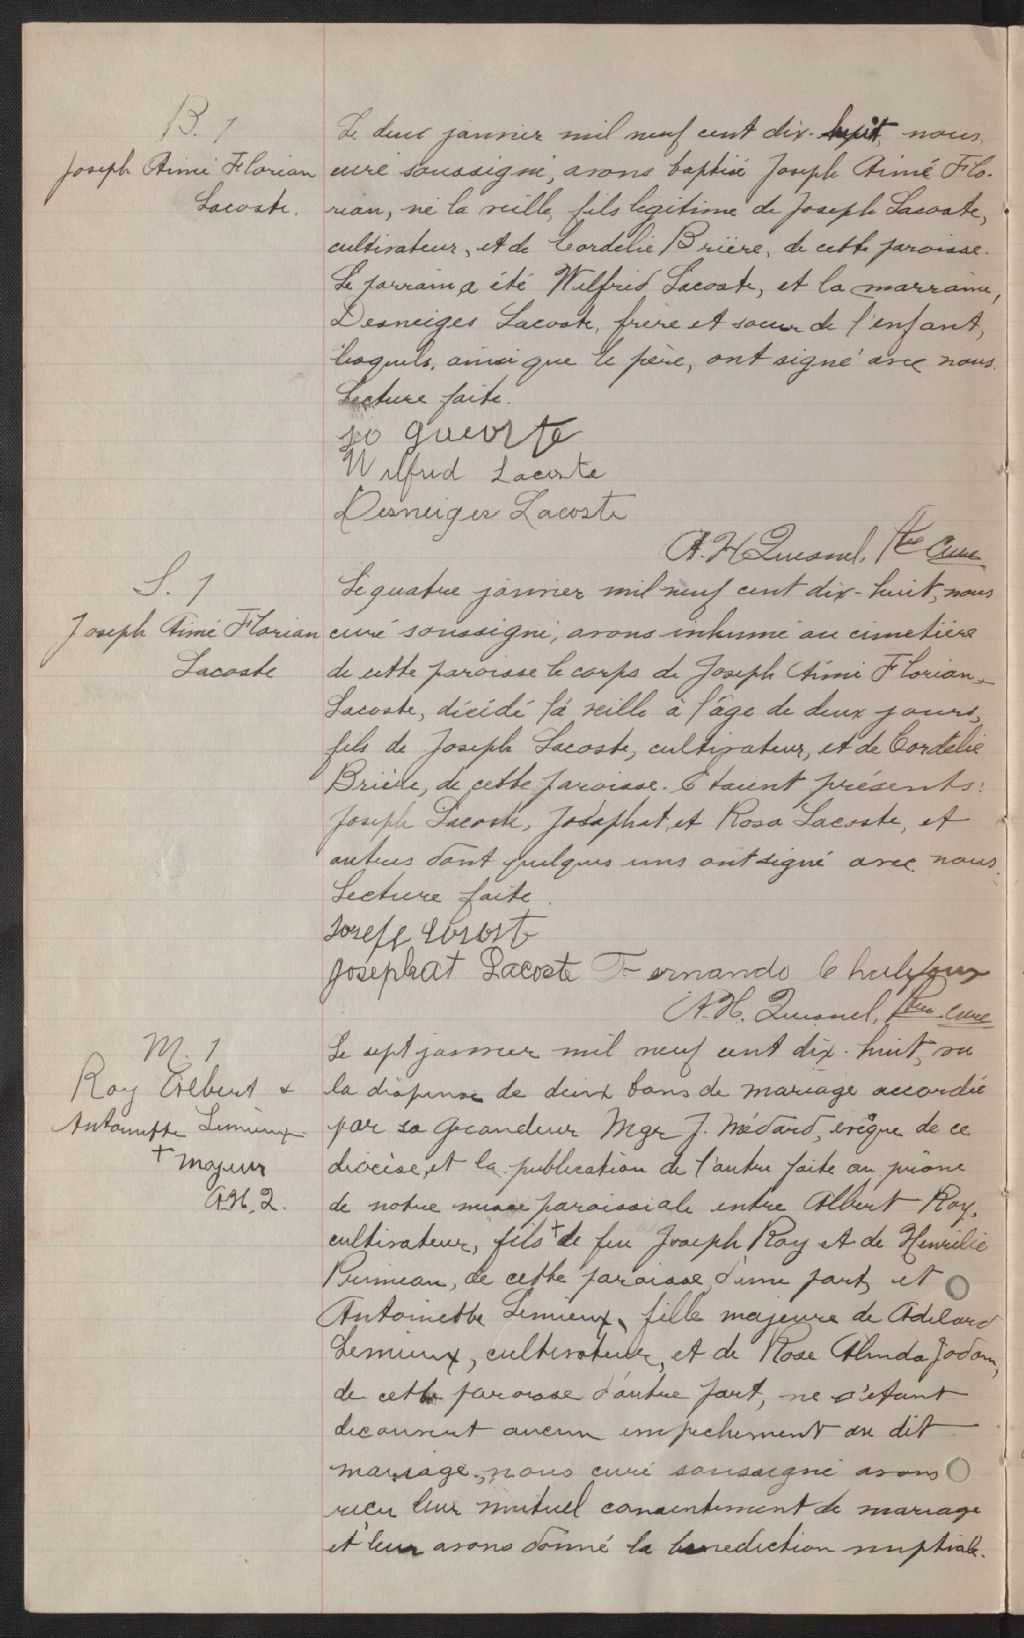 B. 1
Joseph Aimé Florian
Lacoste.
Le deux janvier mil neuf cent dix-huit, nous,
curé soussigné, avons baptisé Joseph Aimé Flo-
rian, né la veille, fils légitime de Joseph Lacoste,
cultivateur, et de Cordélie Brière, de cette paroisse.
Le parrain a été Wilfrid Lacoste, et la marraine,
Desneiges Lacoste, frère et soeur de l'enfant,
lesquels, ainsi que le père, ont signé avec nous.
Lecture faite.
Wilfrid Lacoste
Desneiges Lacoste
A. H. Quesnel, Ptre Curé
S. 1
Joseph Aimé Florian
Lacoste
Le quatre janvier mil neuf cent dix-huit, nous
curé soussigné, avons inhumé au cimetière
de cette paroisse le corps de Joseph Aimé Florian
Lacoste, décédé la veille à l'âge de deux jours,
fils de Joseph Lacoste, cultivateur, et de Cordélie
Brière, de cette paroisse. Étaient présents:
Joseph Lacoste, Josaphat et Rosa Lacoste, et
autres dont quelques uns ont signé avec nous.
Lecture faite.
Josephat Lacoste Fernando
A. H. Quesnel, Ptre curé
M. 1
Roy Albert &
Antoinette Lemieux
+ majeur
A.H.Q.
Le sept janvier mil neuf cent dix-huit, vu
la dispense de deux bans de mariage accordée
par sa Grandeur Mgr J. Médard, évêque de ce
diocèse, et la publication de l'autre faite au prône
de notre messe paroissiale entre Albert Roy,
cultivateur, fils + de feu Joseph Roy et de Henrilie
Primeau, de cette paroisse, d'une part, et
Antoinette Lemieux, fille majeure de Adélard
Lemieux, cultivateur, et de Rose Alinda Jodoin,
de cette paroisse d'autre part, ne s'étant
découvert aucun empêchement au dit
mariage, nous curé soussigné avons
reçu leur mutuel consentement de mariage
et leur avons donné la bénédiction nuptiale.